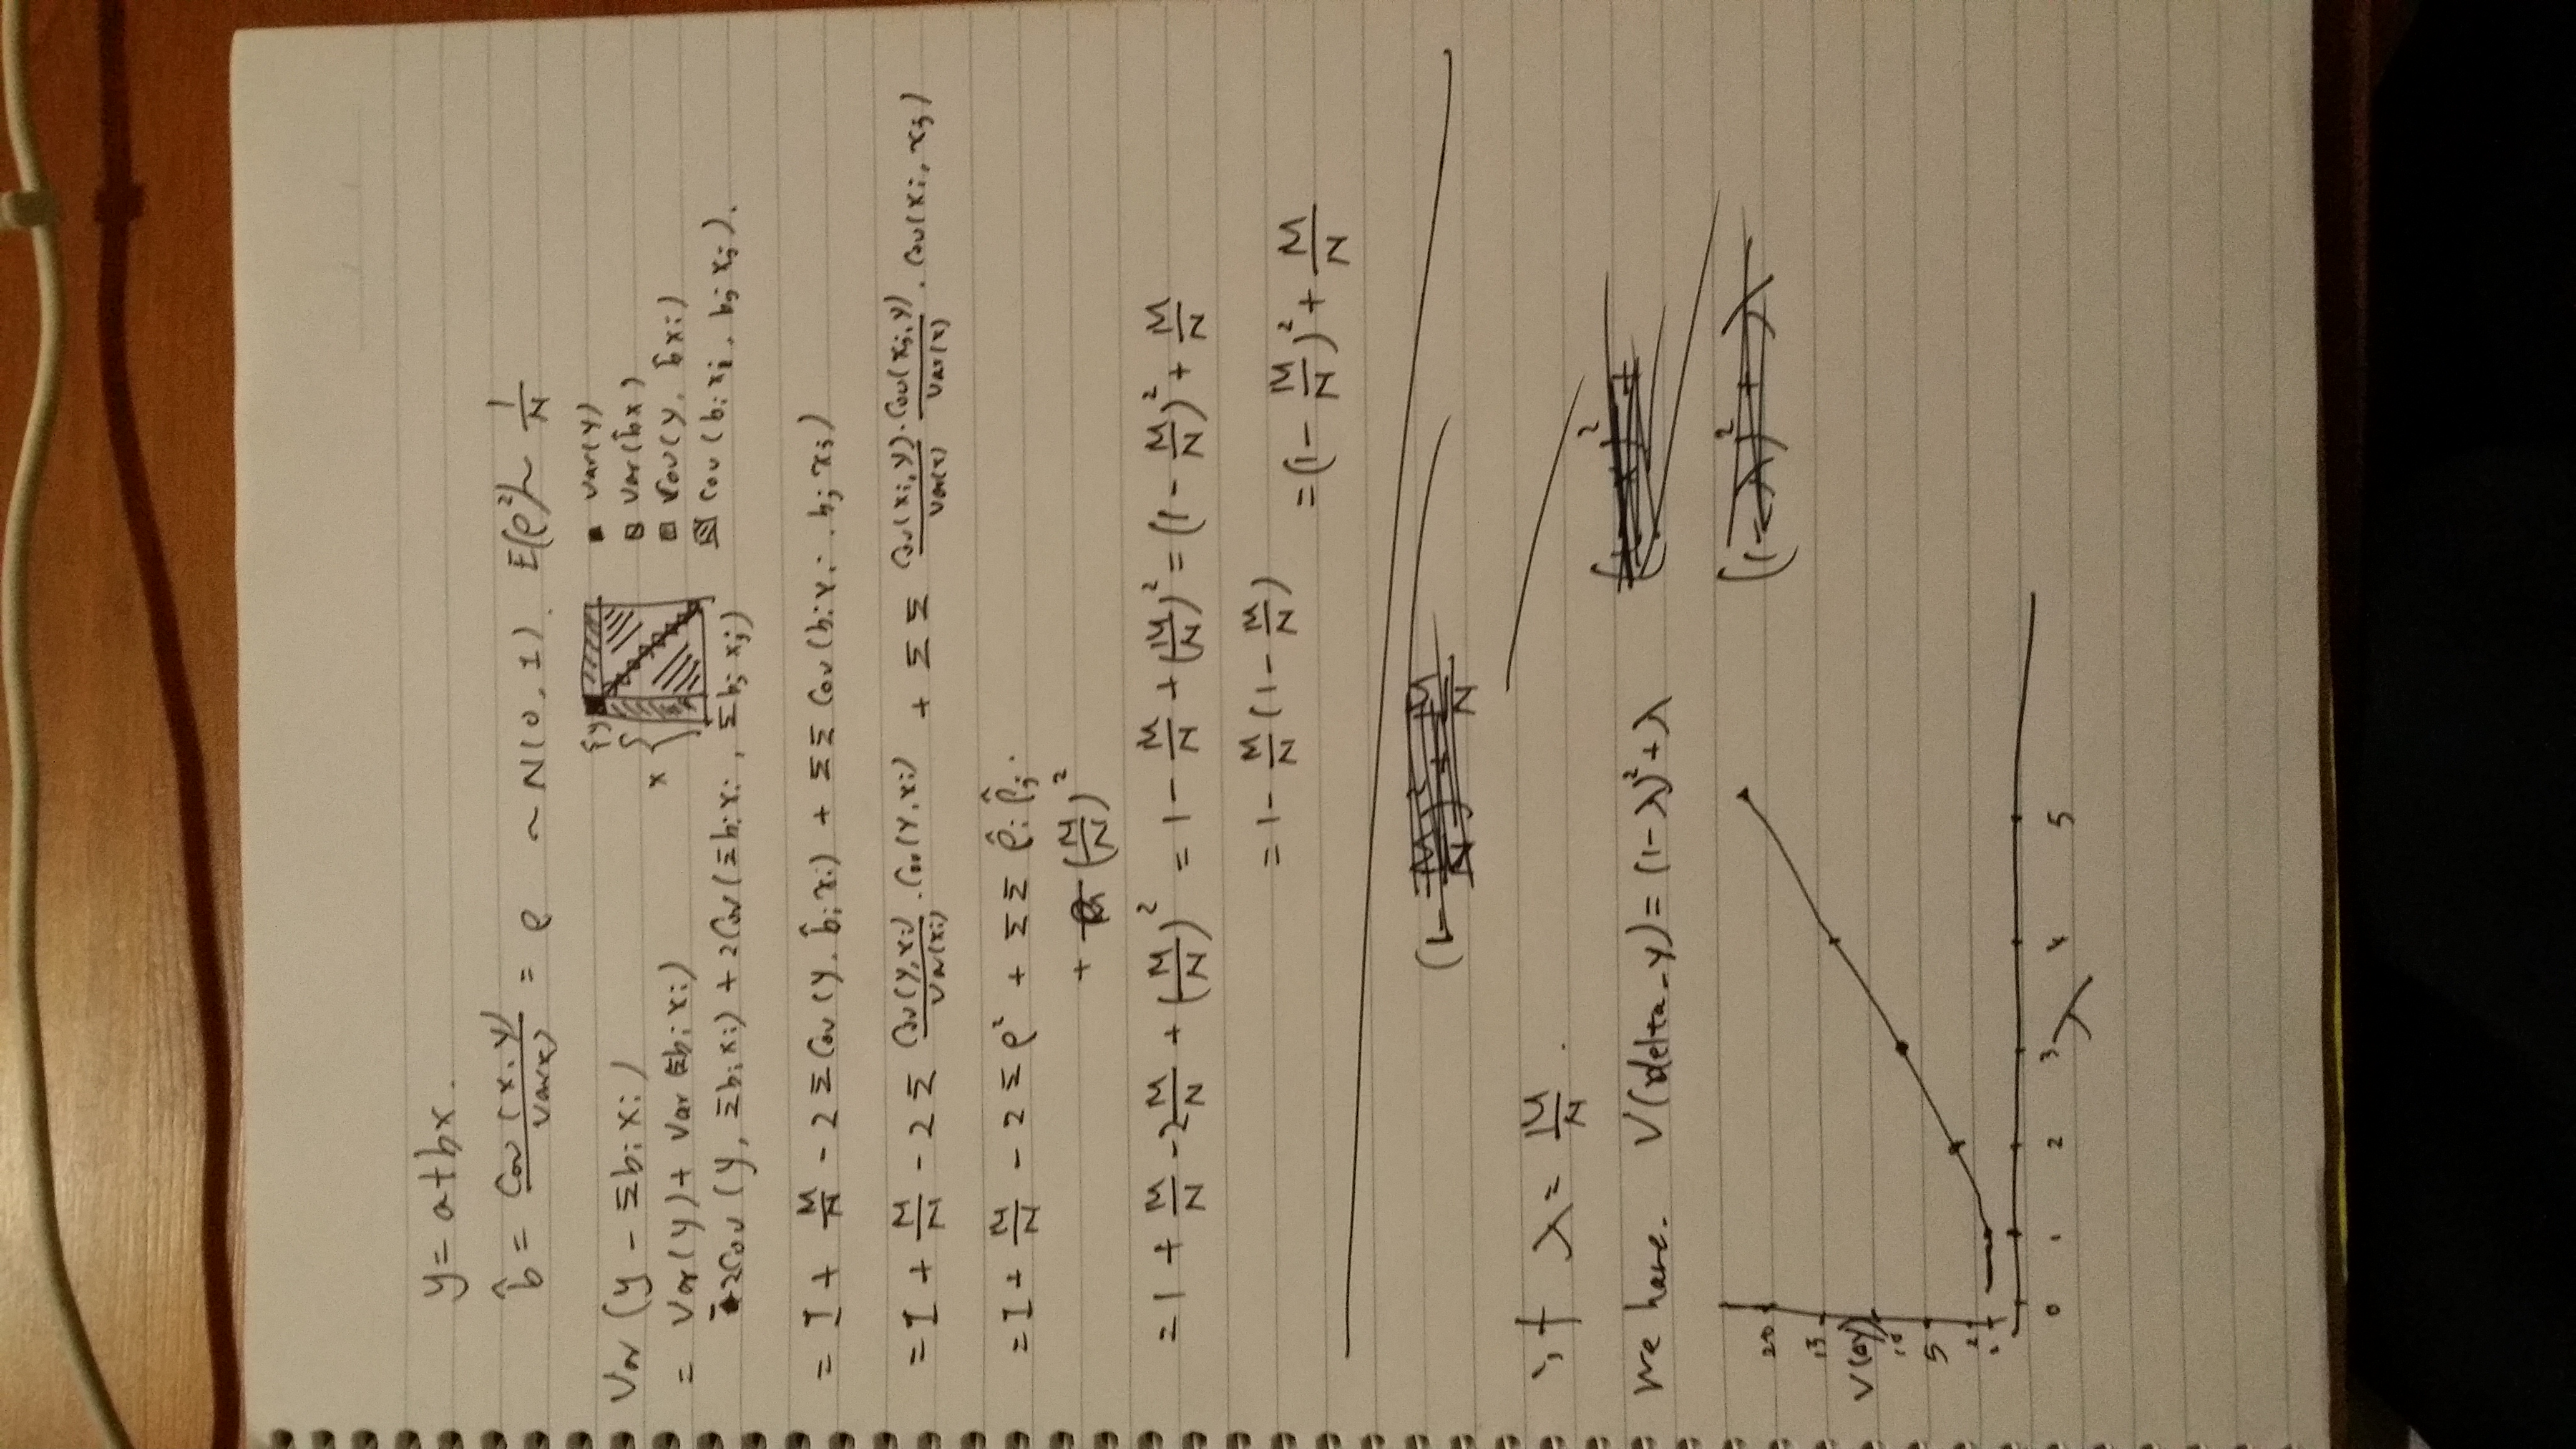 y = a + bx.
b̂ = Cov(x,y)/Var(x) = ρ ~ N(0,1). E(ρ²) ~ 1/N
{y
x {
▪ Var(y)
Var(b̂x)
Cov(y, b̂xi)
Cov(bixi, bjxj).
Var(y - Σbixi)
= Var(y) + Var(Σbixi)
-2Cov(y, Σbixi) + 2Cov(Σbixi, Σbjxj)
= 1 + M/N - 2ΣCov(y, b̂ixi) + ΣΣCov(bixi, bjxj)
= 1 + M/N - 2Σ Cov(y,xi)/Var(xi) · Cov(y,xi) + ΣΣ Cov(xi,y)/Var(x) · Cov(xj,y)/Var(x) · Cov(xi,xj)
= 1 + M/N - 2Σρ² + ΣΣ ρ̂i ρ̂j.
+ (M/N)²
= 1 + M/N - 2M/N + (M/N)² = 1 - M/N + (M/N)² = (1 - M/N)² + M/N
= 1 - M/N(1 - M/N) = (1 - M/N)² + M/N
if λ = M/N.
We have. V(delta_y) = (1-λ)² + λ
(1-λ)² + λ
20
15
V(Δy)
10
5
2
0 1 2 3 4 5
λ